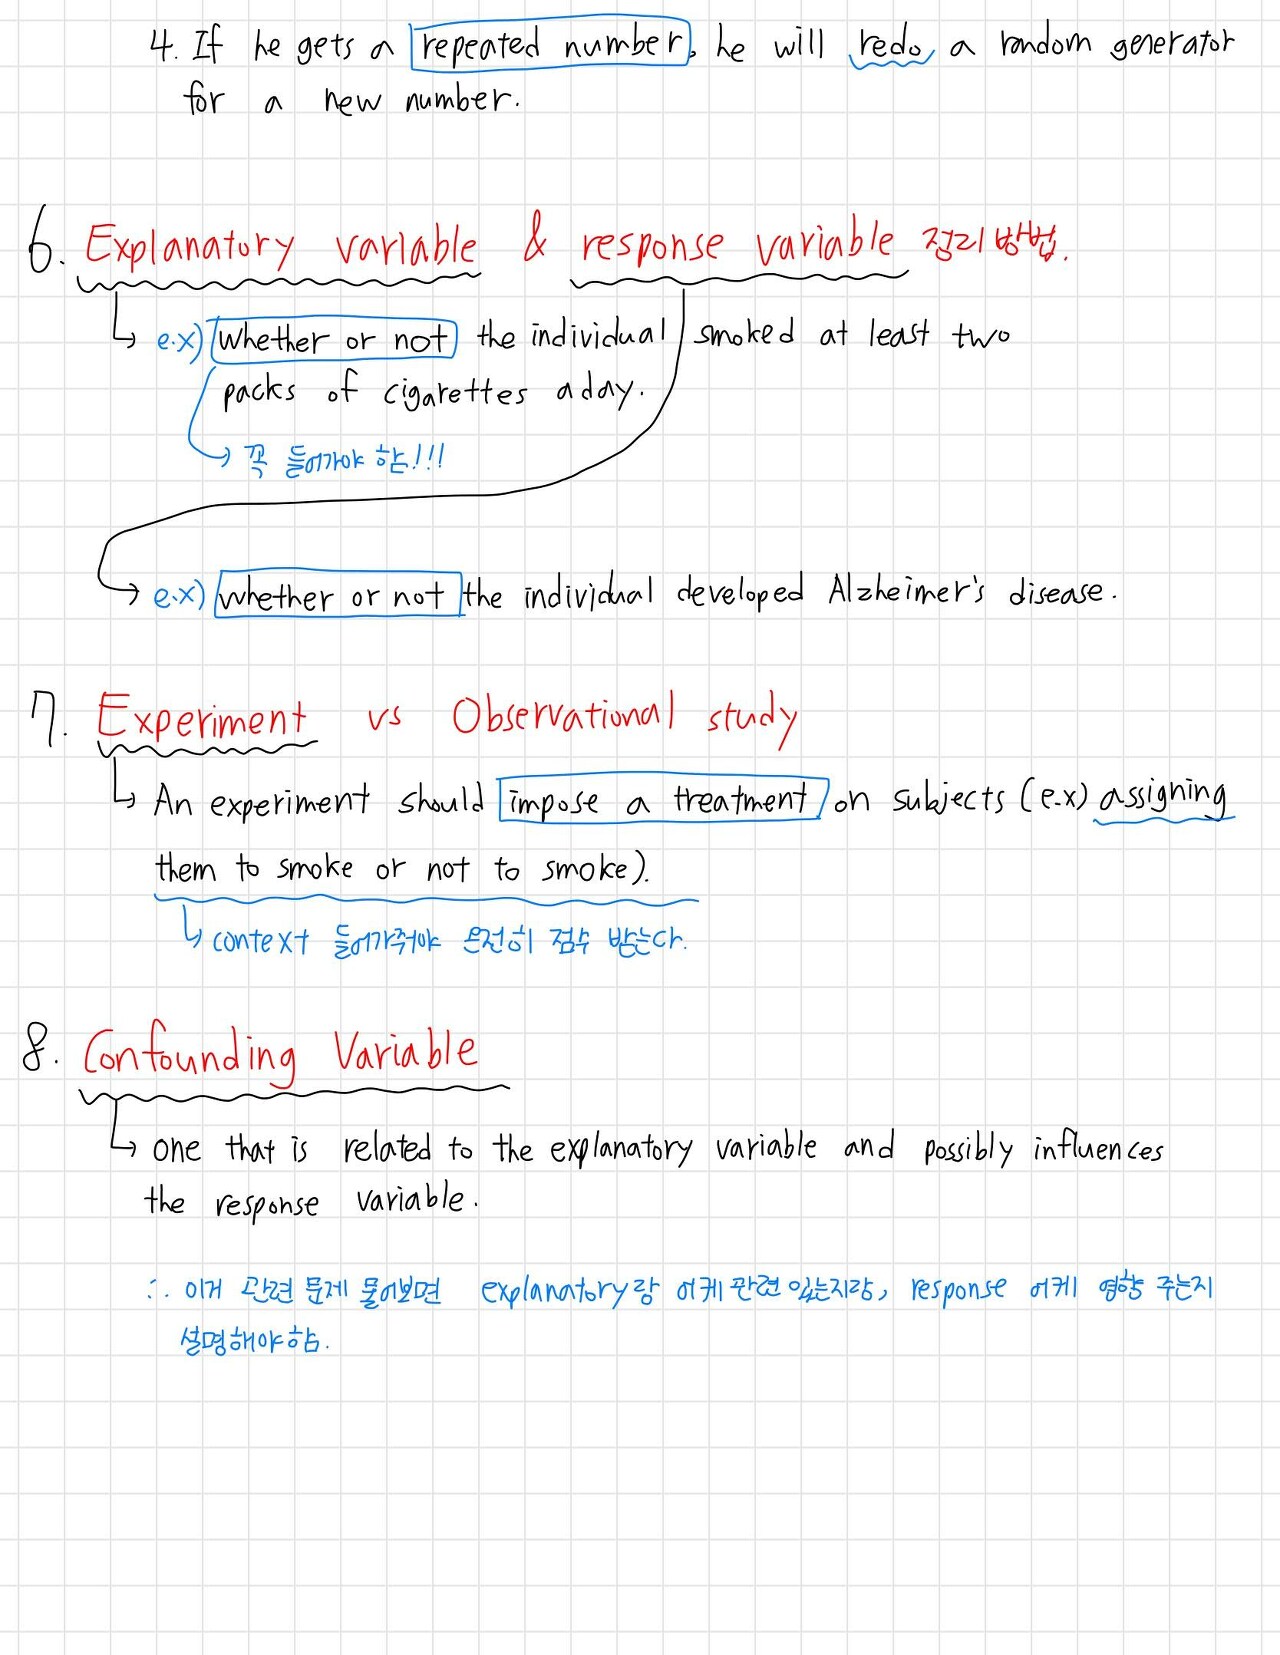 4. If he gets a repeated number, he will redo a random generator
for a new number.
6. Explanatory variable & response variable 정리 방법.
e.x) whether or not the individual smoked at least two
packs of cigarettes a day.
꼭 들어가야 함!!!
e.x) whether or not the individual developed Alzheimer's disease.
7. Experiment vs Observational study
An experiment should impose a treatment on subjects (e.x) assigning
them to smoke or not to smoke).
context 들어가줘야 온전히 점수 받는다.
8. Confounding Variable
one that is related to the explanatory variable and possibly influences
the response variable.
∴ 이거 관련 문제 물어보면 explanatory랑 어케 관련 있는지랑, response 어케 영향 주는지
설명해야함.